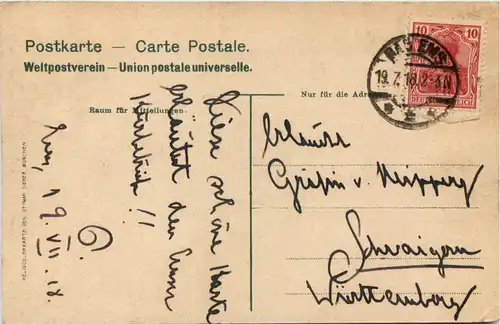 Postkarte — Carte Postale.
Weltpostverein — Union postale universelle.
Raum für Mitteilungen.
Nur für die Adresse
BAD EMS
19.7.18. 2-3N
10 10
DEUTSCHES REICH
Diese schöne Karte
erläutert den Emser
Kurbetrieb!!
Ems, 19. VII. 18.
Erlaucht
Gräfin v. Neipperg
Schwaigern
Württemberg